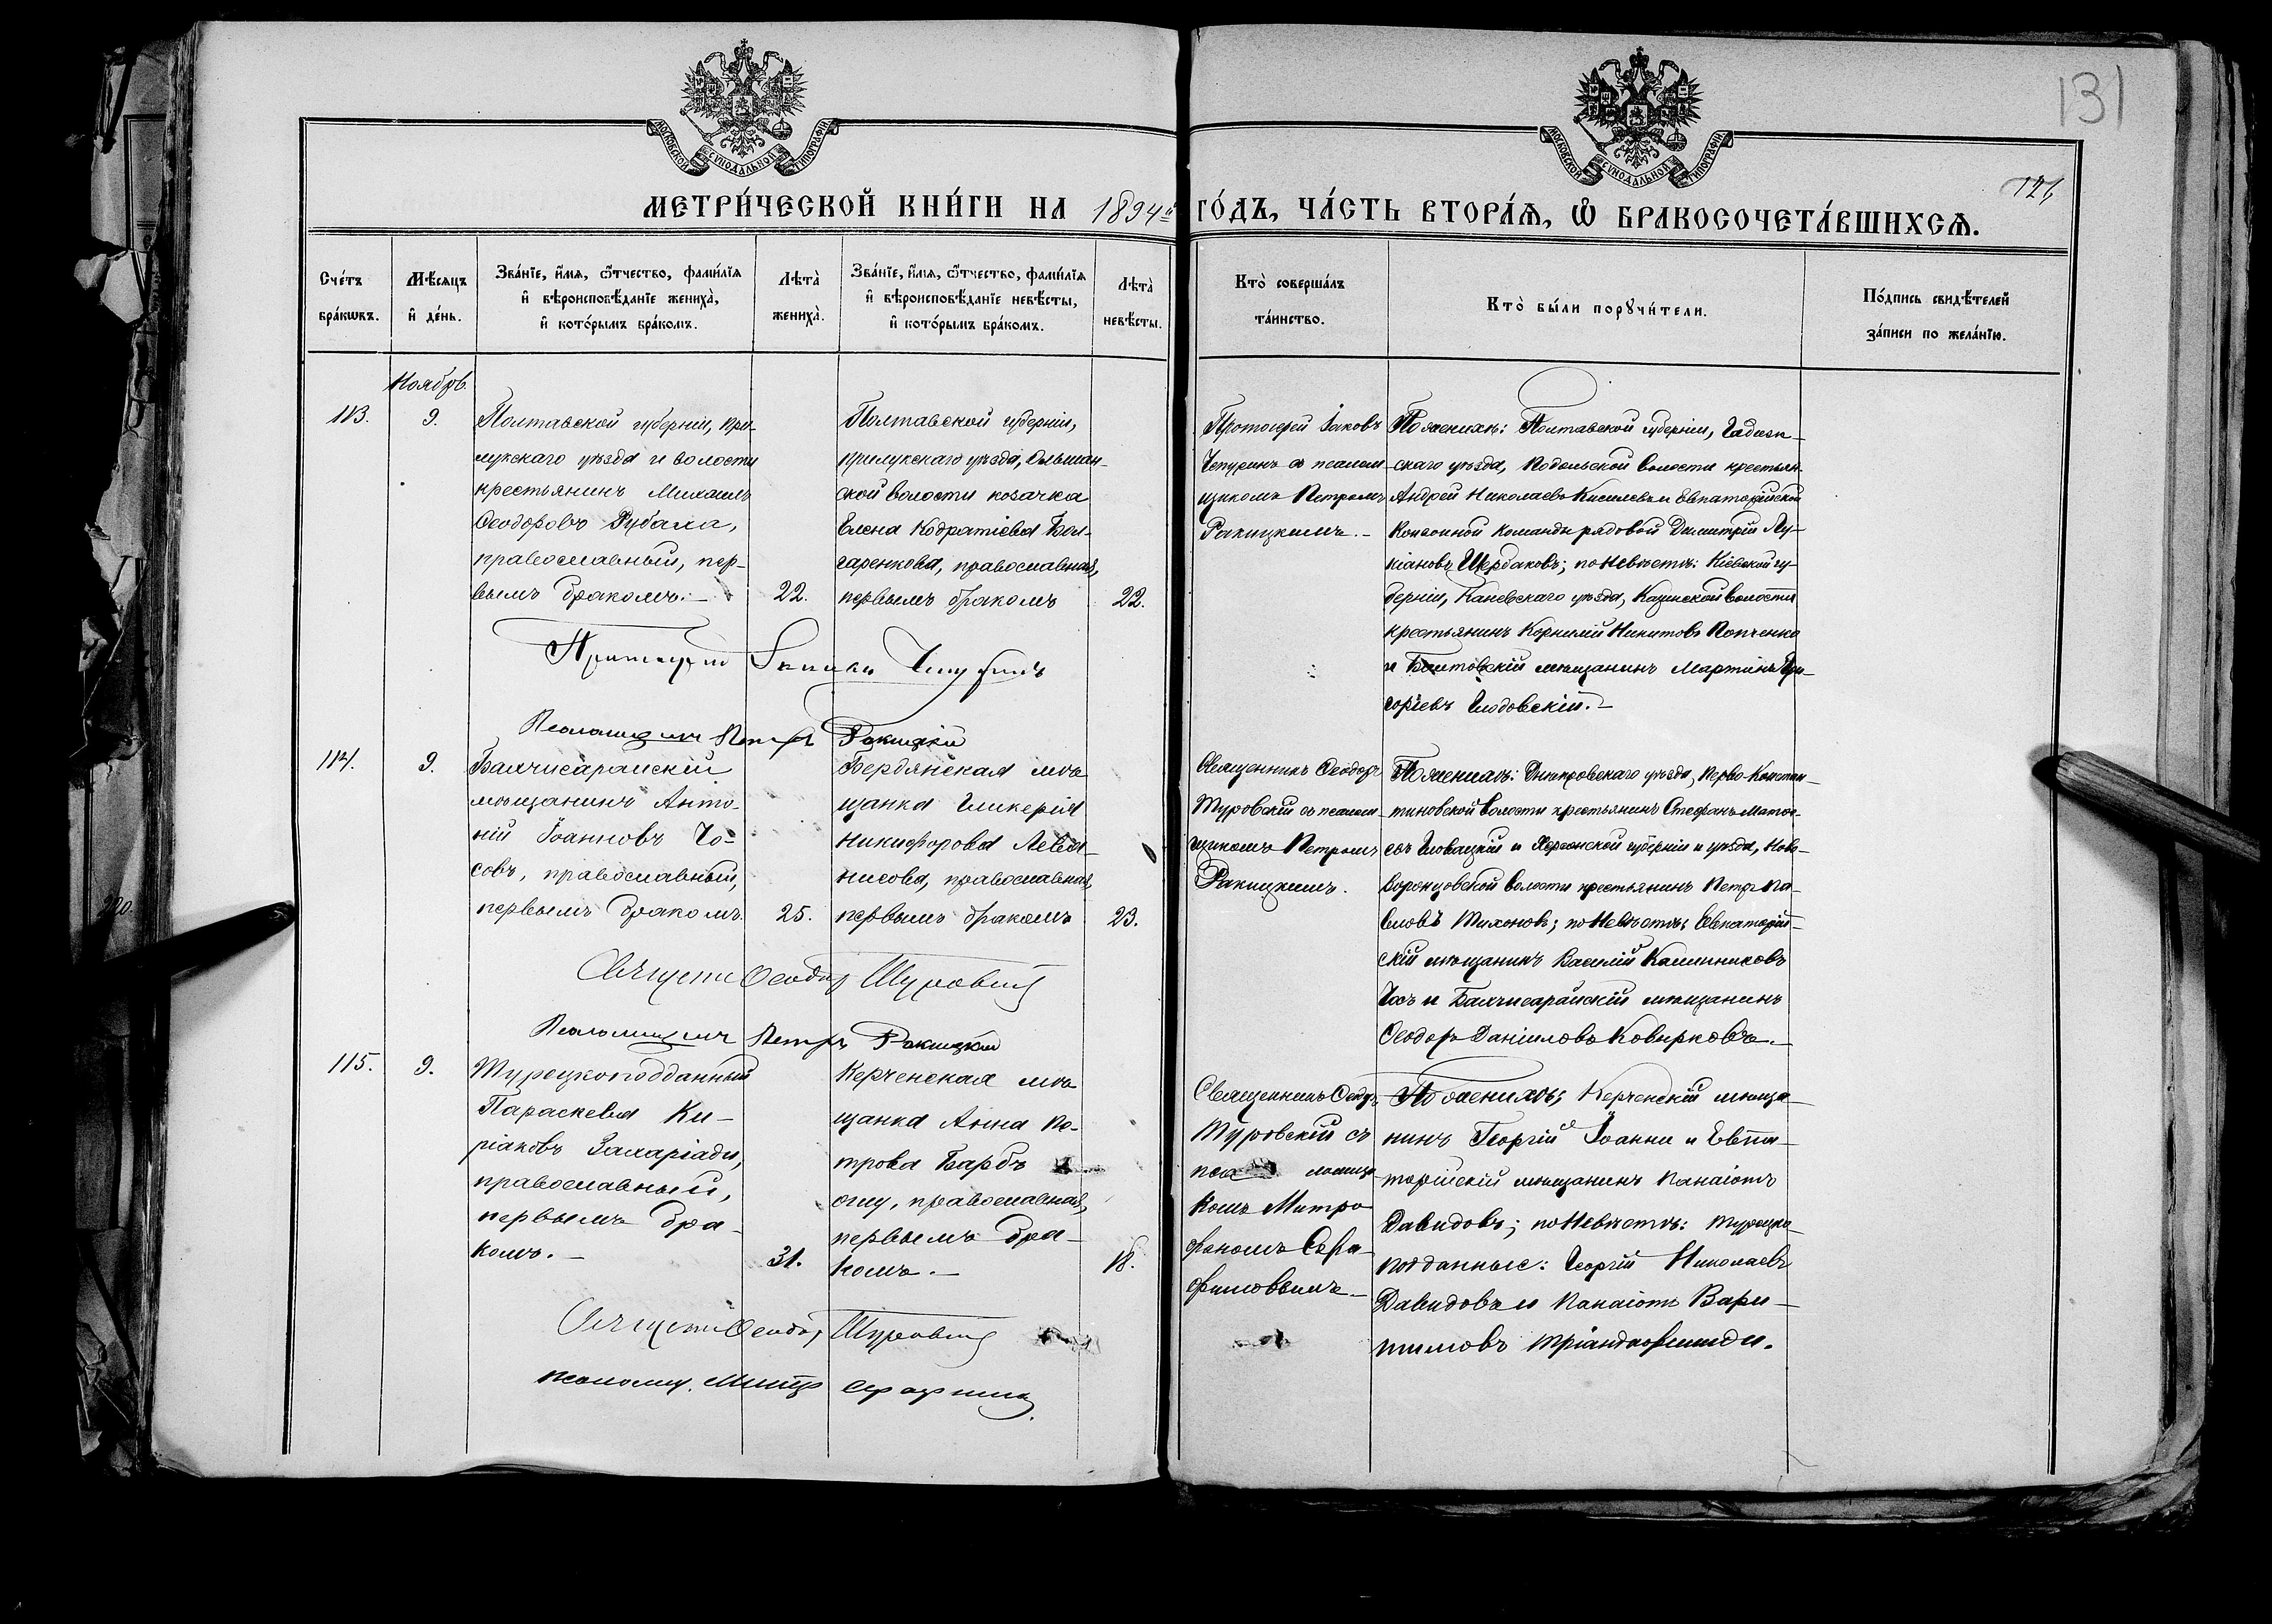 МОСКОВСКОЙ СУНОДАЛЬНОЙ ТИПОГРАФІИ
МОСКОВСКОЙ СУНОДАЛЬНОЙ ТИПОГРАФІИ
131
126
МЕТРИ́ЧЕСКОЙ КНИ́ГИ НА 1894й ГО́ДЪ, ЧА́СТЬ ВТОРА́Ѧ, Ѽ БРАКОСОЧЕТА́ВШИХСѦ.
Сче́тъ бра́кѡвъ.
Мѣ́сѧцъ и҆ де́нь.
Зва́нїе, и҆́мѧ, ѻ҆́тчество, фами́лїѧ
и҆ вѣроисповѣ́данїе жениха̀,
и҆ кото́рымъ бра́комъ.
Лѣта̀ жениха̀.
Зва́нїе, и҆́мѧ, ѻ҆́тчество, фами́лїѧ
и҆ вѣроисповѣ́данїе невѣ́сты,
и҆ кото́рымъ бра́комъ.
Лѣта̀ невѣ́сты.
Кто̀ соверша́лъ
та́инство.
Кто̀ бы́ли порꙋчи́тели.
По́дпись свидѣ́телей
за́писи по жела́нїю.
Ноябрь.
113.
9.
Полтавской губерніи, При-
лукскаго уѣзда и волости
крестьянинъ Михаилъ
Ѳеодоровъ Рубаха,
православный, пер-
вымъ бракомъ.—
22.
Полтавской губерніи,
Прилукскаго уѣзда, Ольшан-
ской волости козачка
Елена Кодратіева Бол-
гаренкова, православная,
первымъ бракомъ
22.
Протоіерей Іаковъ
Чепуринъ съ псалом-
щикомъ Петромъ
Ракицкимъ.—
По женихѣ: Полтавской губерніи, Гадяч-
скаго уѣзда, Подольской волости крестьян.
Андрей Николаевъ Киселевъ и Евпаторійской
Конвойной команды рядовой Димитрій Лу-
кіановъ Щербаковъ; по невѣстѣ: Кіевской гу-
берніи, Каневскаго уѣзда, Козинской волости
крестьянинъ Корнилій Никитовъ Копченко
и Балтовскій мѣщанинъ Мартинъ Гри-
горіевъ Глодовскій.—
Протоіерей Іаковъ Чепуринъ
Псаломщикъ Петръ Ракицкій
114.
9.
Бахчисарайскій
мѣщанинъ Анто-
ній Іоанновъ Чо-
совъ, православный,
первымъ бракомъ.
25.
Бердянская мѣ-
щанка Гликерія
Никифорова Лева-
нисова, православная,
первымъ бракомъ
23.
Священникъ Ѳеодоръ
Туровскій съ псалом-
щикомъ Петромъ
Ракицкимъ.
По женихѣ: Днѣпровскаго уѣзда, Перво-Констан-
тиновской волости крестьянинъ Стефанъ Матѳе-
евъ Гловацкій и Херсонской губерніи и уѣзда, Ново-
воронцовской волости крестьянинъ Петръ Па-
вловъ Тихоновъ; по невѣстѣ: Евпаторій-
скій мѣщанинъ Василій Калинниковъ
Чосъ и Бахчисарайскій мѣщанинъ
Ѳеодоръ Даніиловъ Ковырковъ.—
Священ. Ѳеодоръ Туровскій
Псаломщикъ Петръ Ракицкій
115.
9.
Турецкоподданный
Параскева Ки-
ріаковъ Захаріади,
православный,
первымъ бра-
комъ.—
31.
Керченская мѣ-
щанка Анна Пе-
трова Барбъ
оглу, православная,
первымъ бра-
комъ.—
18.
Священникъ Ѳеодоръ
Туровскій съ
псаломщи-
комъ Митро-
фаномъ Сера-
фимовымъ.—
По женихѣ: Керченскій мѣща-
нинъ Георгій Іоанни и Евпа-
торійскій мѣщанинъ Панаіотъ
Давидовъ; по невѣстѣ: турецко-
подданные: Георгій Николаевъ
Давидовъ и Панаіотъ Вари-
тимовъ Тріандофилиди.
Священ. Ѳеодоръ Туровскій
Псаломщ. Митр. Серафимов